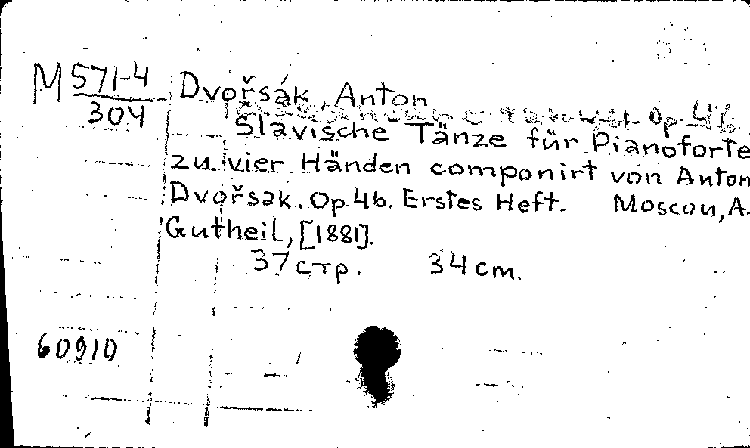 M 571-4
304
Dvořsák, Anton
Op. 46.
Slavische Tänze für Pianoforte
zu vier Händen componirt von Anton
Dvořsak. Op. 46. Erstes Heft. Moscou, A.
Gutheil, [1881].
37 стр. 34 cm.
60910